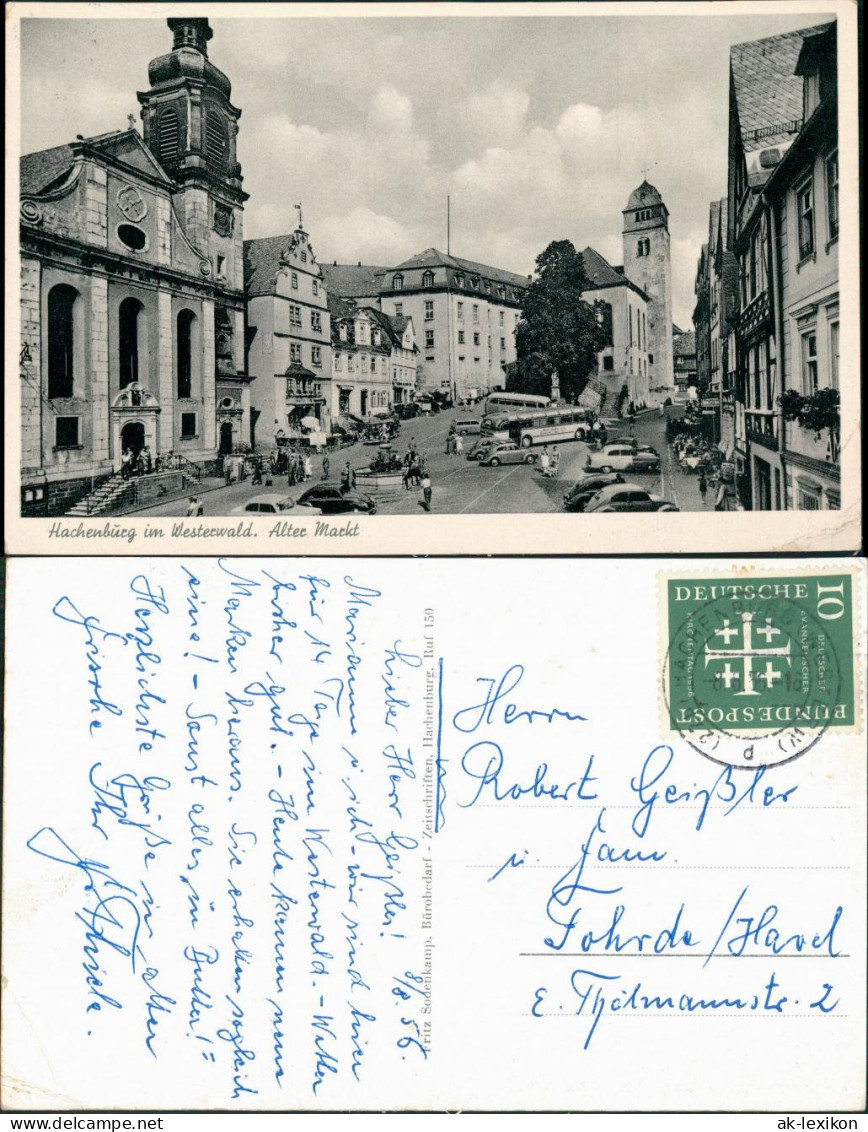 Hachenburg im Westerwald. Alter Markt
Lieber Herr Geißler! 8/8. 56.
Marianne u. ich - wir sind hier
für 14 Tage im Westerwald. - Wetter
bisher gut. - Heute kamen neue
Marken heraus. Sie erhalten sogleich
eine! - Sonst alles "in Butter"!=
Herzlichste Grüße in alter
Frische Ihr
Fritz Sodenkamp, Bürobedarf - Zeitschriften, Hachenburg, Ruf 150
DEUTSCHE
BUNDESPOST
10
DEUTSCHER
EVANGELISCHER
KIRCHENTAG 1956
HACHENBURG
Herrn
Robert Geißler
u. Fam.
Fohrde/Havel
E. Thälmannstr. 2
ak-lexikon